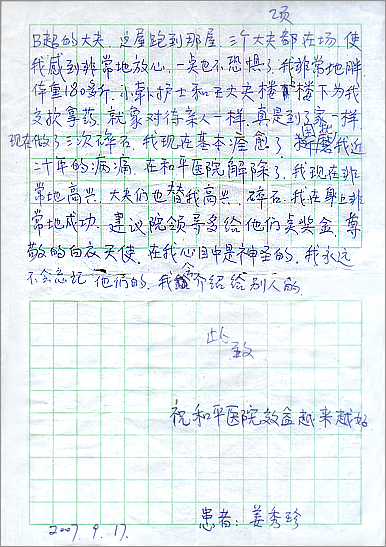 2页
B超的大夫，这屋跑到那屋，三个大夫都在场，使
我感到非常地放心，一点也不恐惧了，我非常地胖
体重180多斤，小郭护士和王大夫楼下楼下为我
交款拿药，就象对待亲人一样，真是到了家一样，
现在做了三次碎石，我现在基本痊愈了，困扰我近
二十年的病痛，在和平医院解除了，我现在非
常地高兴，大夫们也替我高兴，碎石，我在身上非
常地成功，建议院领导多给他们点奖金，尊
敬的白衣天使，在我心目中是神圣的，我永远
不会忘记他们的，我会介绍给别人的，
此
致
祝和平医院效益越来越好
患者：姜秀珍
2007.9.17.